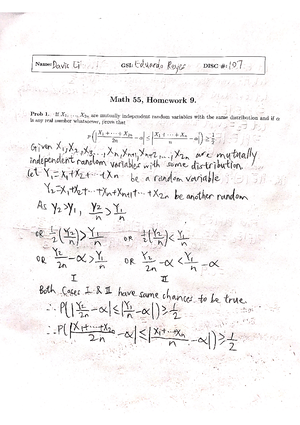 Name: Davis Li GSI: Eduardo Reyes DISC #: 107
Math 55, Homework 9.
Prob 1. If X₁, ..., X₂ₙ are mutually independent random variables with the same distribution and if α
is any real number whatsoever, prove that
P(|(X₁ + ⋯ + X₂ₙ)/2n − α| ≤ |(X₁ + ⋯ + Xₙ)/n − α|) ≥ 1/2
Given X₁, X₂, X₃, ..., Xₙ, Xₙ₊₁, Xₙ₊₂, ..., X₂ₙ are mutually
independent random variables with same distribution.
Let Y₁ = X₁+X₂+ ⋯ +Xₙ be a random variable
Y₂ = X₁+X₂+ ⋯ +Xₙ+Xₙ₊₁+ ⋯ +X₂ₙ be another random
As Y₂>Y₁, Y₂/n > Y₁/n
or 1/2(Y₂/n) > Y₁/n or 1/2(Y₂/n) < Y₁/n
or Y₂/2n − α > Y₁/n − α or Y₂/2n − α < Y₁/n − α
I II
Both Cases I & II have same chances to be true
∴ P(|Y₂/2n − α| ≤ |Y₁/n − α|) ≥ 1/2
∴ P(|(X₁+⋯+X₂ₙ)/2n − α| ≤ |(X₁+⋯+Xₙ)/n − α|) ≥ 1/2